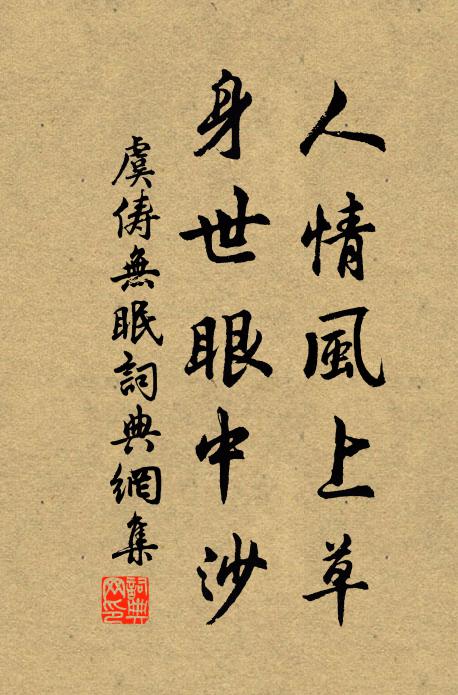 人情風上草
身世眼中沙
虞儔無眠詞典網集
詞典網印